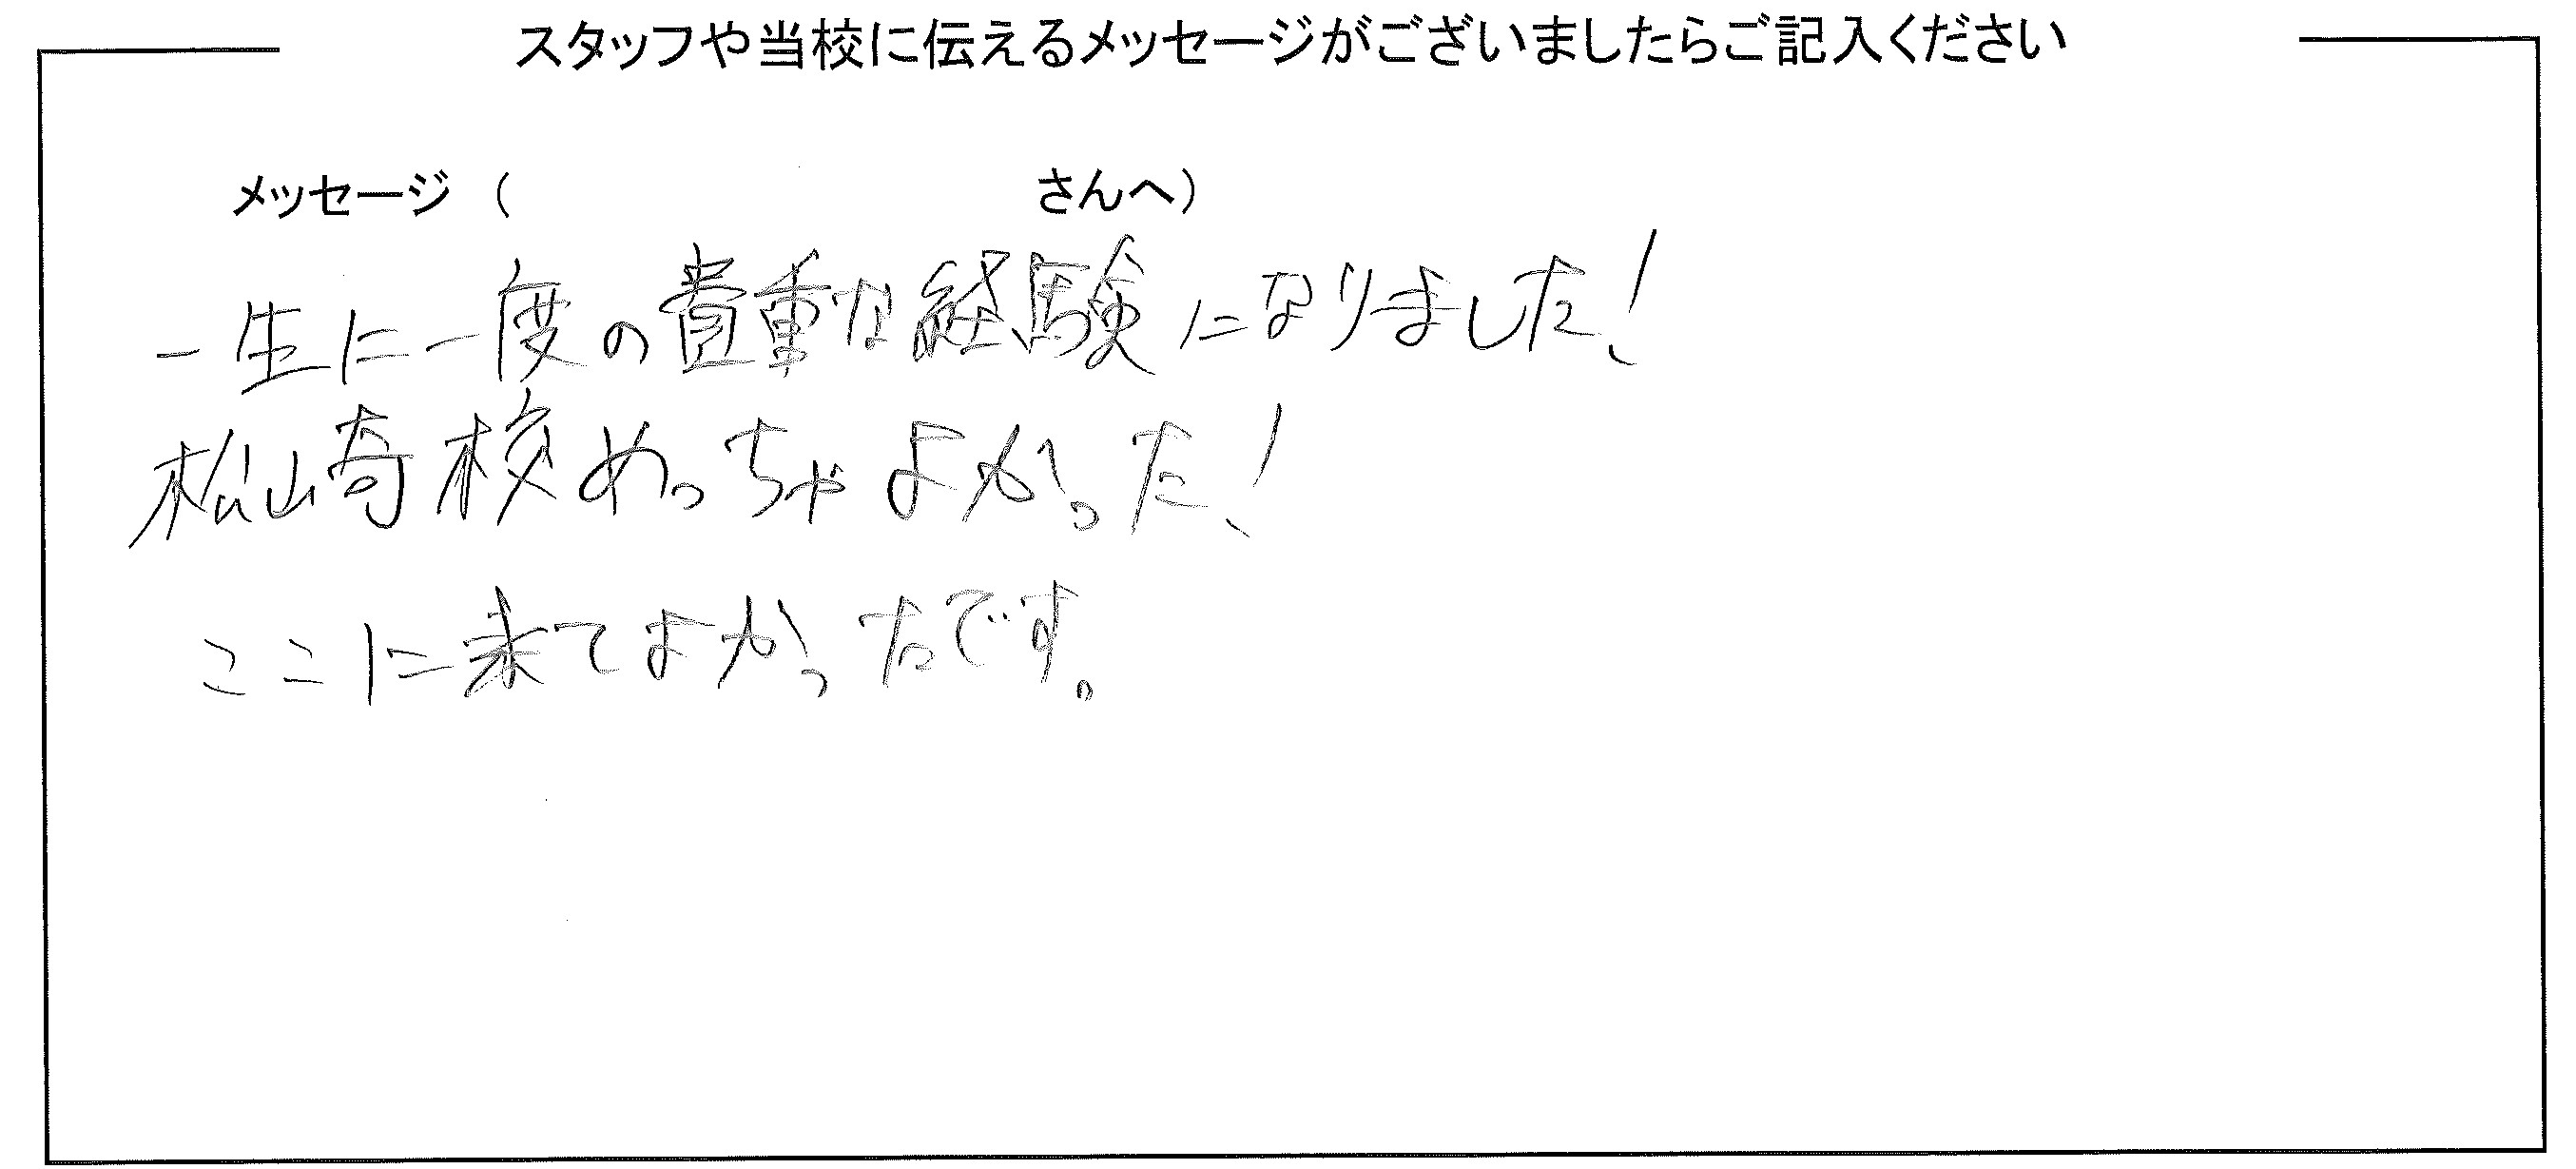 スタッフや当校に伝えるメッセージがございましたらご記入ください
メッセージ（　　　　　　　　さんへ）
一生に一度の貴重な経験になりました！
松崎校めっちゃよかった！
ここに来てよかったです。